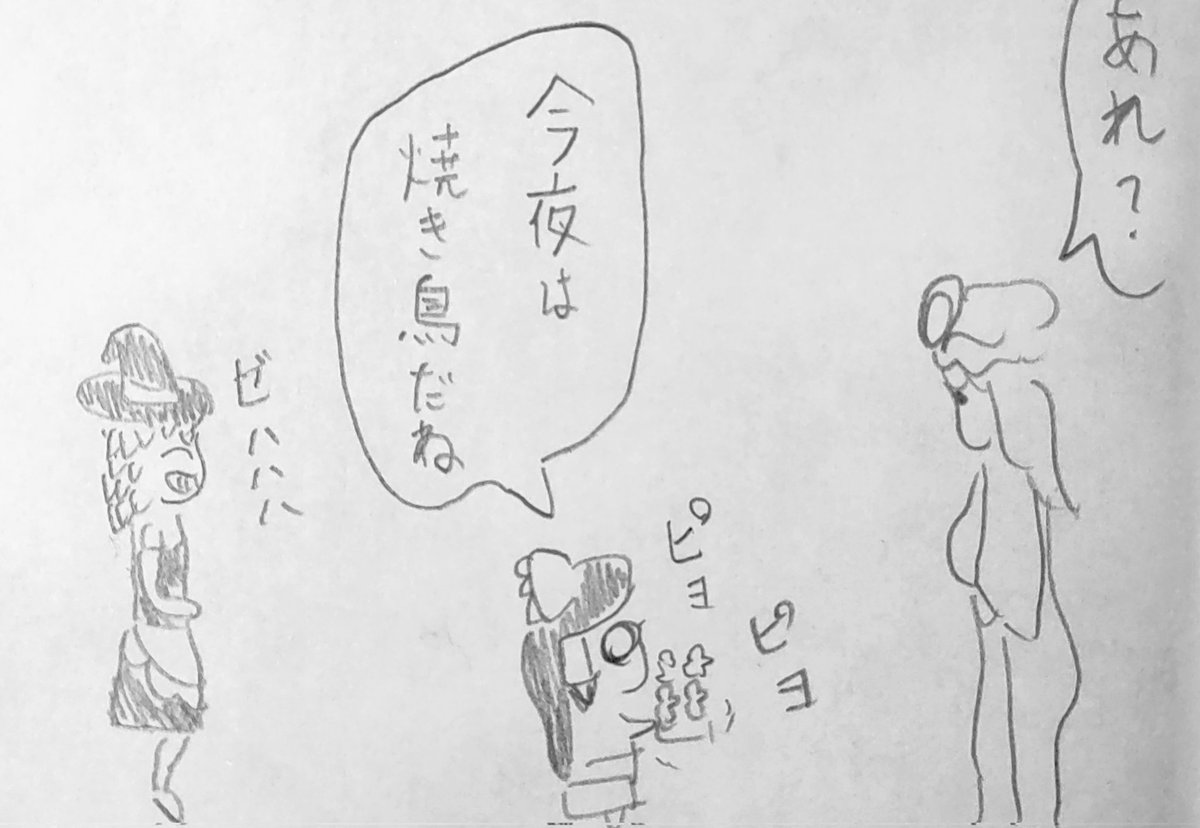 あれ?
今夜は
焼き鳥だね
ピヨ
ピヨ
ビハハハ